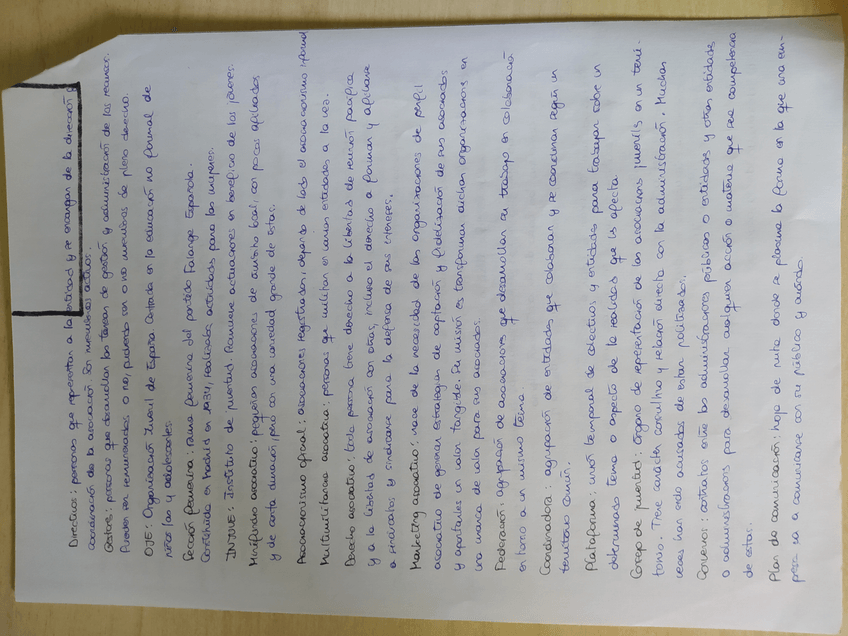 Directivos: personas que representan a la entidad y se encargan de la dirección y
coordinación de la asociación. Son miembros activos.
Gestores: personas que desarrollan las tareas de gestión y administración de los recursos.
Pueden ser remunerados o no, pudiendo ser o no miembros de pleno derecho.
OJE: Organización Juvenil de Española Centrada en la educación no formal de
niños/as y adolescentes.
Sección femenina: rama femenina del partido Falange Española.
Constituida en Madrid en 1934, realizaba actividades para las mujeres.
INJUVE: Instituto de juventud. Promueve actuaciones en beneficio de los jóvenes.
Minifundio asociativo: pequeñas asociaciones de ámbito local, con pocos afiliados
y de corta duración, pero con una variedad grande de estas.
Asociacionismo oficial: asociaciones registradas, dejando de lado el asociacionismo informal
Multimilitancia asociativa: personas que militan en varias entidades a la vez.
Derecho asociativo: toda persona tiene derecho a la libertad de reunión pacífica
y a la libertad de asociación con otras, incluso el derecho a formar y afiliarse
a sindicatos y sindicarse para la defensa de sus intereses.
Marketing asociativo: nace de la necesidad de las organizaciones de perfil
asociativo de generar estrategias de captación y fidelización de sus asociados
y aportarles un valor tangible. Su misión es transformar dichas organizaciones en
una marca de valor para sus asociados.
Federación: agrupación de asociaciones que desarrollan su trabajo en colaboración
en torno a un mismo tema.
Coordinadora: agrupación de entidades que colaboran y se coordinan según un
territorio común.
Plataforma: unión temporal de colectivos y entidades para trabajar sobre un
determinado tema o aspecto de la realidad que les afecta.
Consejo de juventud: órgano de representación de las asociaciones juvenils en un terri-
torio. Tiene carácter consultivo y relación directa con la administración. Muchas
veces han sido acusados de estar politizados.
Convenios: contratos entre las administraciones públicas o entidades y otras entidades
o administraciones para desarrollar cualquier acción o materia que sea competencia
de estas.
Plan de comunicación: hoja de ruta donde se plasma la forma en la que una em-
presa va a comunicarse con su público y cuándo.